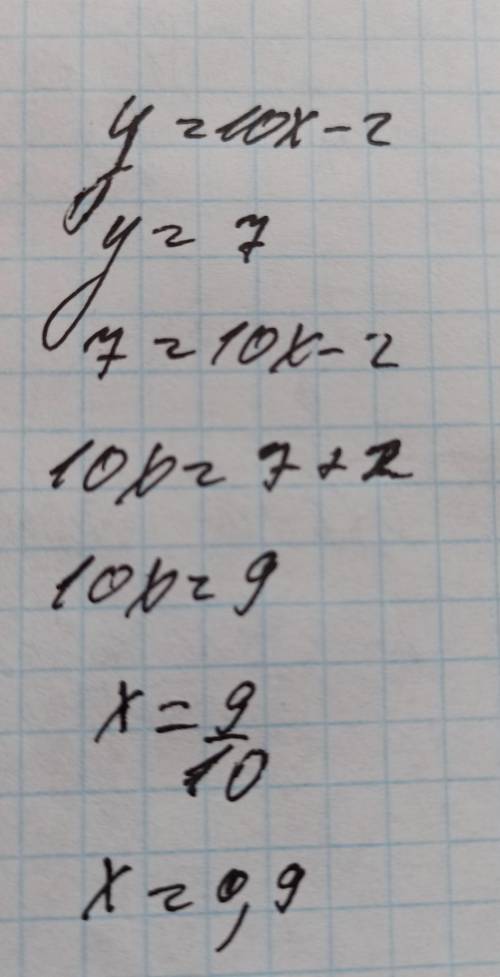 y = 10x - 2
y = 7
7 = 10x - 2
10x = 7 + 2
10x = 9
x = 9/10
x = 0,9